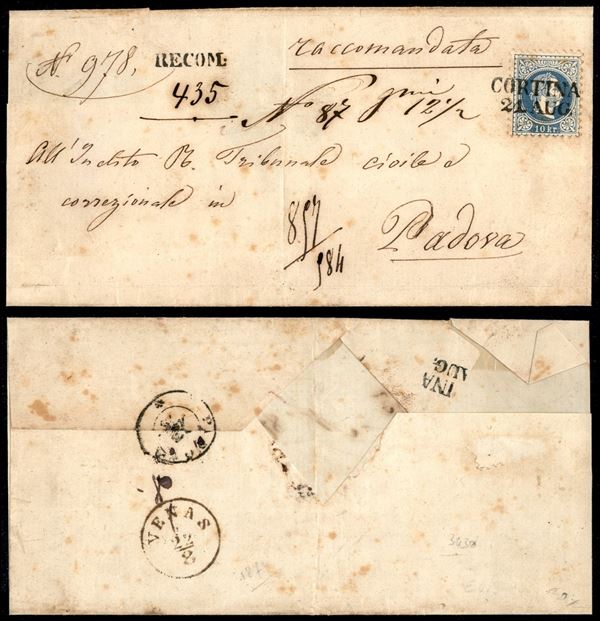 N. 978,
RECOM:
435
raccomandata
CORTINA
2 AUG
10 kr
N° 87
12 1/2
All'Inclito R. Tribunale civile e
correzionale in
Padova
857
984
INA
AUG.
VENAS
22
8